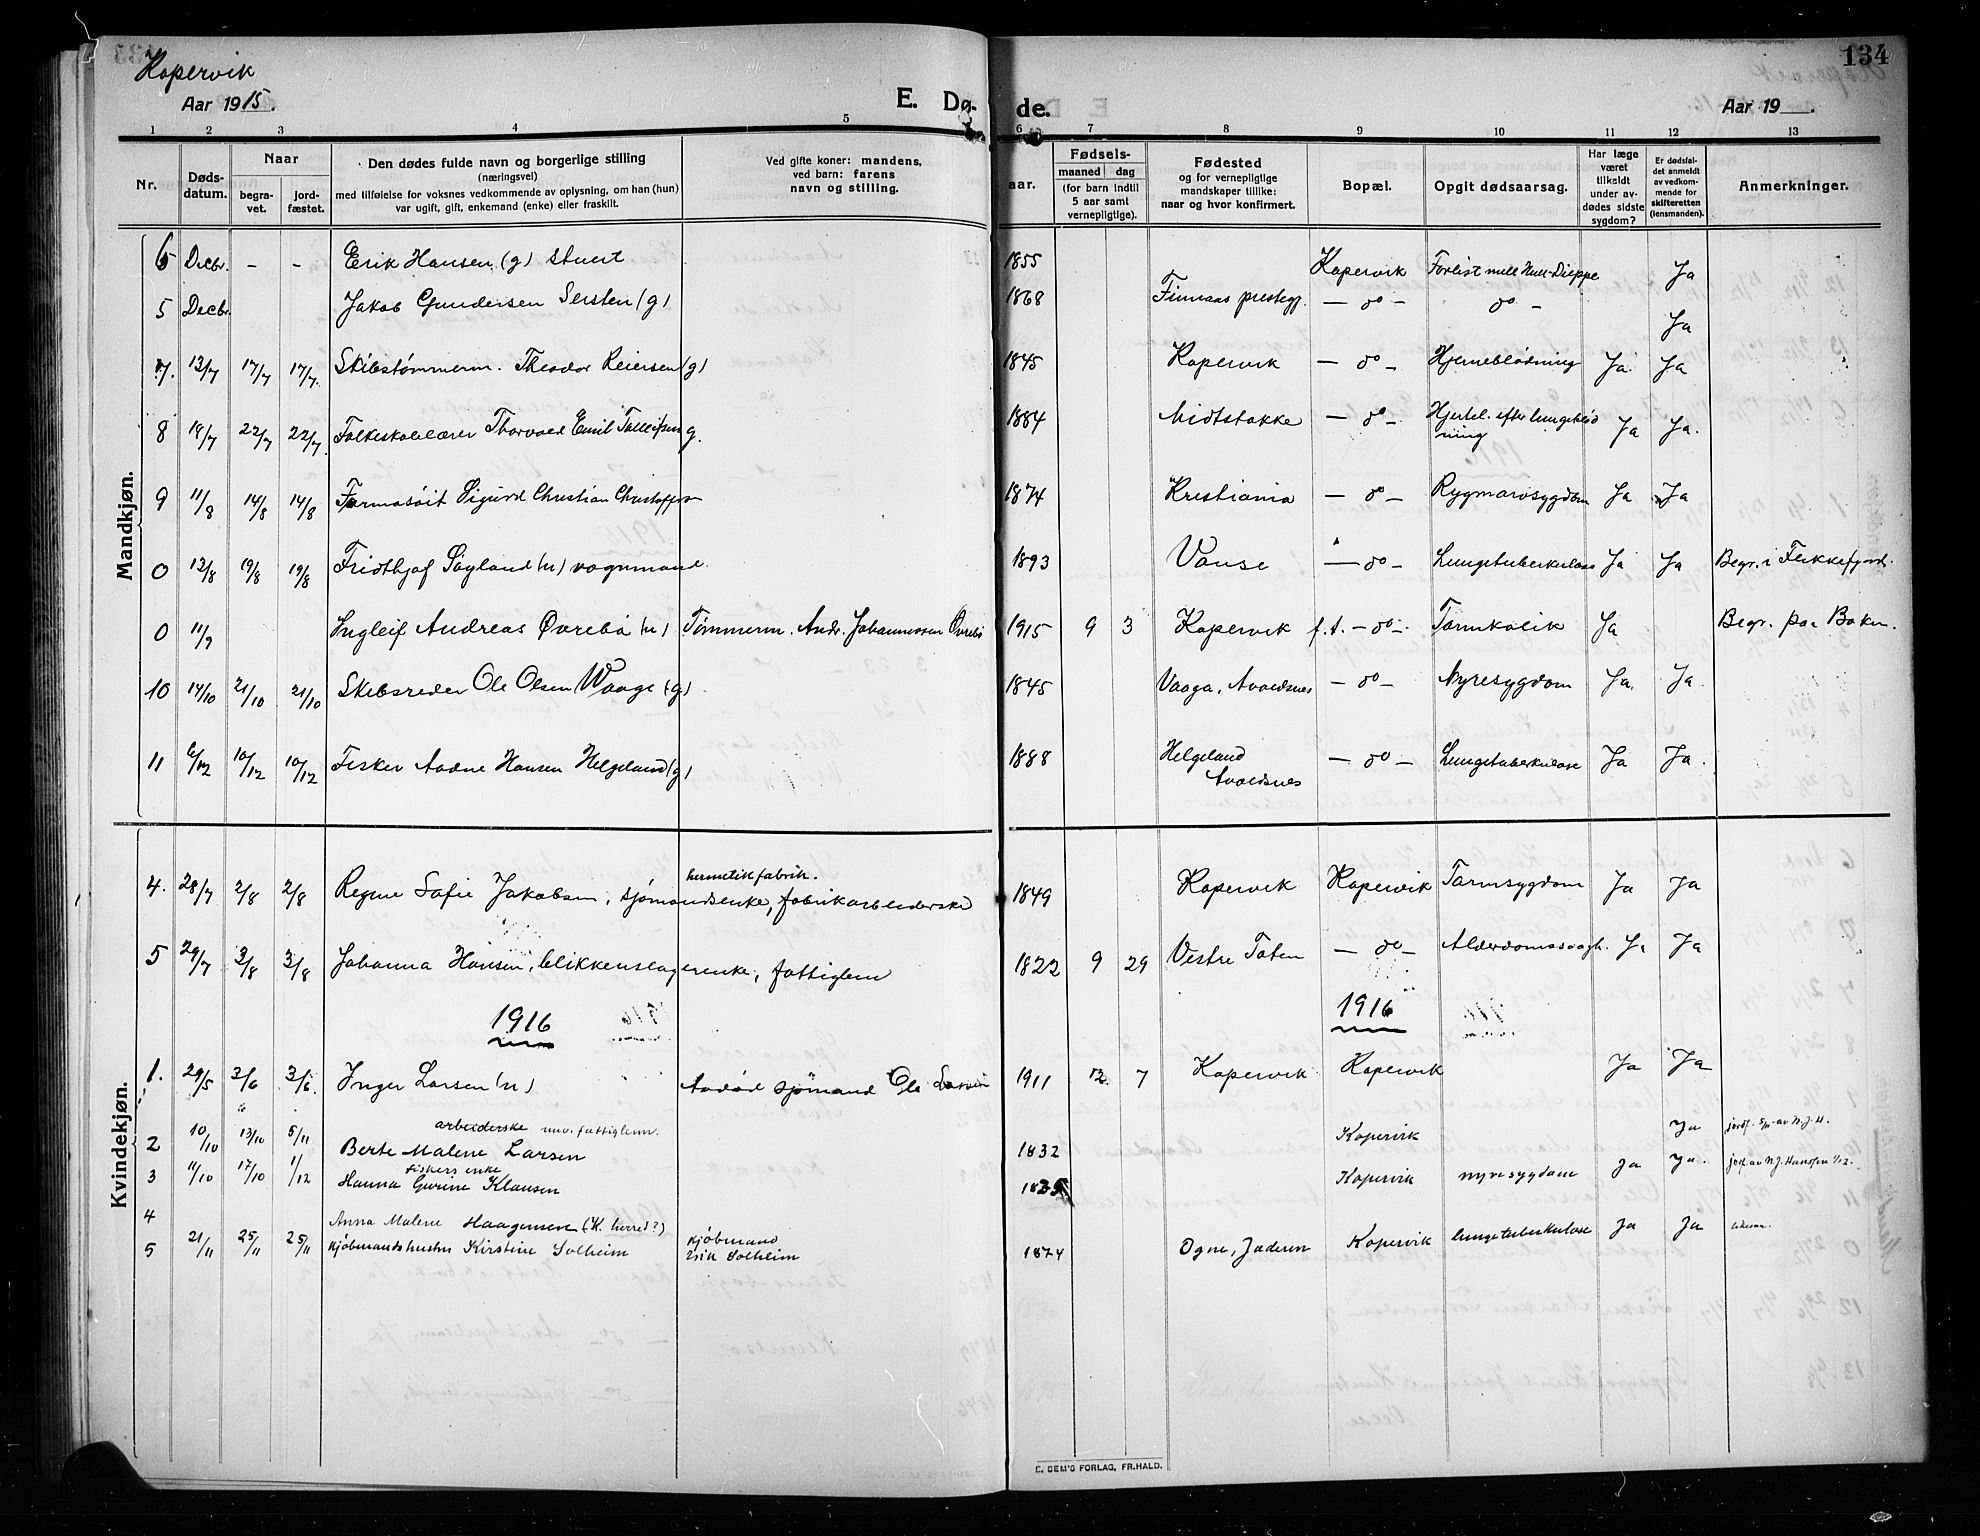 Kopervik
134
Aar 1915.
E. Dø- de.
Aar 19
1 2 3 4 5 6 7 8 9 10 11 12 13
Nr.
Døds-
datum.
Naar
begra-
vet.
jord-
fæstet.
Den dødes fulde navn og borgerlige stilling
(næringsvei)
med tilføielse for voksnes vedkommende av oplysning, om han (hun)
var ugift, gift, enkemand (enke) eller fraskilt.
Ved gifte koner: mandens,
ved barn: farens
navn og stilling.
aar.
Fødsels-
maaned dag
(for barn indtil
5 aar samt
vernepligtige).
Fødested
og for vernepligtige
mandskaper tillike:
naar og hvor konfirmert.
Bopæl.
Opgit dødsaarsag.
Har læge
været
tilkaldt
under av-
dødes sidste
sygdom?
Er dødsfal-
det anmeldt
av vedkom-
mende for
skifteretten
(lensmanden).
Anmerkninger.
Mandkjøn.
6 Decbr. - - Erik Hansen (g) stuert 1855 Kopervik Forlist mell Hull-Dieppe Ja
5 Decbr. Jakob Gundersen Sersten (g) 1868 Finnaas prestegj. — do — do — Ja
7. 13/7 17/7 17/7. Skibstømmerm. Theodor Reiersen (g) 1845 Kopervik — do — Hjerneblødning Ja Ja
8 18/7 22/7 22/7. Folkeskolelærer Thorvald Emil Tolleifsen g. 1884 Midtstokke — do — Hjertel. efter lungeblød
ning Ja Ja.
9 11/8 14/8 14/8 Sigurd Christian 1874 Kristiania — do — Rygmarvsygdom Ja Ja
0 13/8 19/8 19/8 Fridthjof Søyland (u) vognmand. 1893 Vanse — do — Lungetuberkulose Ja Ja Begr. i Flekkefjord.
0 11/9 Ingleif Andreas Øvrebø (u) Tømmerm. Andr. Johannessen Øvrebø 1915 9 3 Kopervik f.t. — do — Tarmkolik Ja Begr. paa Bokn.
10 14/10 21/10 21/10 Skibsreder Ole Olsen Waage (g) 1845 Vaaga, Avaldsnes — do — Nyresygdom Ja. Ja.
11 6/12 10/12 10/12 Fisker Aadne Hansen Helgeland (g) 1888 Helgeland
Avaldsnes — do — Lungetuberkulose Ja Ja.
Kvindekjøn.
hermetikfabrik.
4. 28/7 2/8 2/8 Regine Sofie Jakobsen, sjømandsenke, fabrikarbeiderske 1849 Kopervik Kopervik Tarmsygdom Ja Ja
5 29/7 3/8 3/8 Johanna Hansen, blikkenslagerenke, fattiglem 1822 9 29 Vestre Toten — do — Alderdomssvagh. Ja Ja
1916 1916
1. 29/5 3/6 3/6. Inger Larsen (u) Avdød sjømand Ole Larsen 1911 12 7 Kopervik Kopervik Ja Ja
arbeiderske fattiglem.
2 10/10 13/10 5/11 Berte Malene Larsen 1832 Kopervik Ja jordf. 5/11 av N.J.H.
fiskers enke
3 11/10 17/10 1/12 Hanna Gurine Klausen Kopervik nyresygdom Ja Ja. av N.J. Hanssen 1/12.
4 Anna Malene Haagensen (K. herred?)
5 21/11 25/11 25/11 Kjøbmandshustru Kirstine Solheim Kjøbmand
Erik Solheim 1874 Ogne, Jæderen Kopervik lungetuberkulose Ja Ja
E. SEM'S FORLAG, FR.HALD.